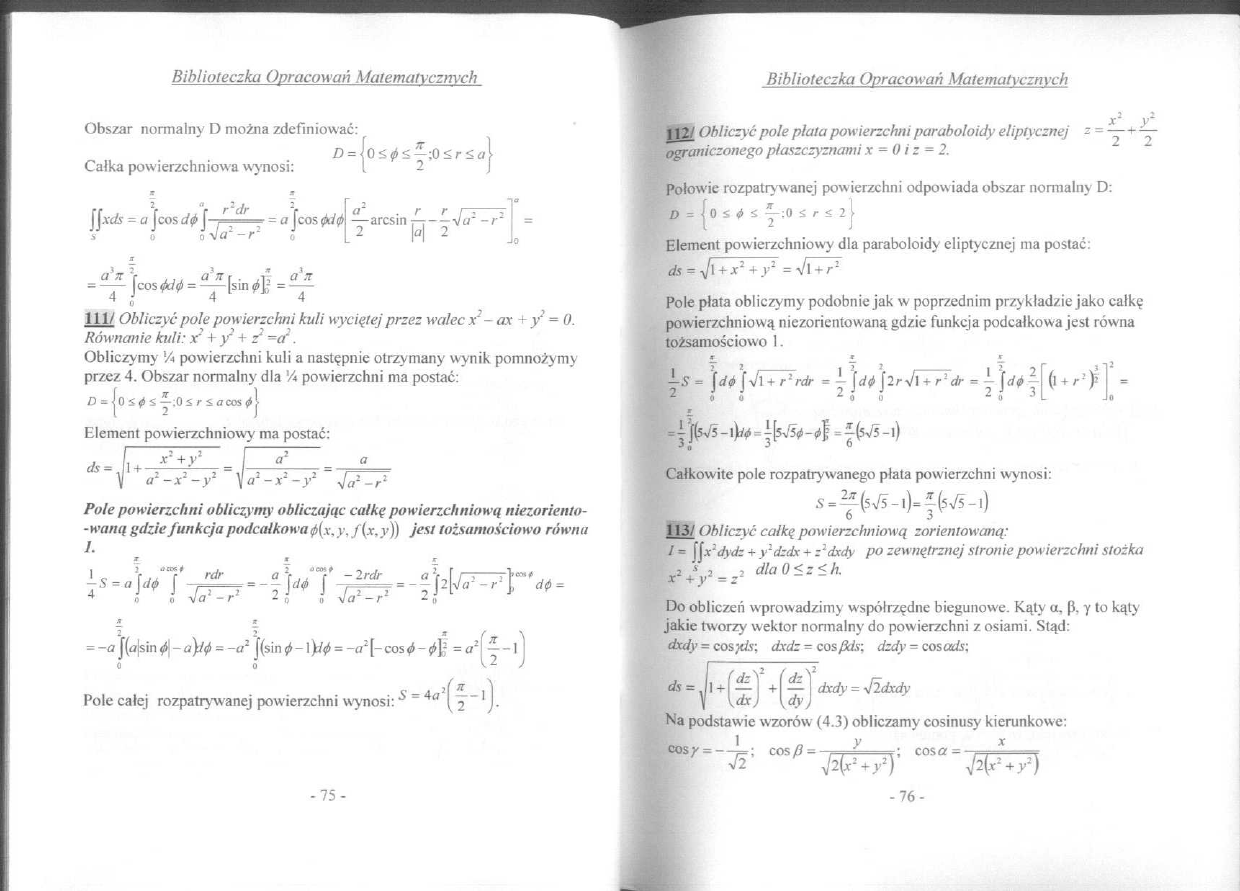 Biblioteczka Opracowań Matematycznych
Obszar normalny D można zdefiniować:
Całka powierzchniowa wynosi: D = {0 ≤ ϕ ≤ π/2; 0 ≤ r ≤ a}
∬_S xds = a ∫_0^{π/2} cos dϕ ∫_0^a r²dr/√(a² − r²) = a ∫_0^{π/2} cos ϕdϕ [a²/2 arcsin r/|a| − r/2 √(a² − r²)]_0^a =
= a³π/4 ∫_0^{π/2} cos ϕdϕ = a³π/4 [sin ϕ]_0^{π/2} = a³π/4
111/ Obliczyć pole powierzchni kuli wyciętej przez walec x² – ax + y² = 0.
Równanie kuli: x² + y² + z² =a².
Obliczymy ¼ powierzchni kuli a następnie otrzymany wynik pomnożymy
przez 4. Obszar normalny dla ¼ powierzchni ma postać:
D = {0 ≤ ϕ ≤ π/2; 0 ≤ r ≤ a cos ϕ}
Element powierzchniowy ma postać:
ds = √(1 + (x² + y²)/(a² − x² − y²)) = √(a²/(a² − x² − y²)) = a/√(a² − r²)
Pole powierzchni obliczymy obliczając całkę powierzchniową niezoriento-
-waną gdzie funkcja podcałkowa ϕ(x, y, f(x, y)) jest tożsamościowo równa
1.
1/4 S = a ∫_0^{π/2} dϕ ∫_0^{a cos ϕ} rdr/√(a² − r²) = − a/2 ∫_0^{π/2} dϕ ∫_0^{a cos ϕ} −2rdr/√(a² − r²) = − a/2 ∫_0^{π/2} 2[√(a² − r²)]_0^{a cos ϕ} dϕ =
= −a ∫_0^{π/2} (a|sin ϕ| − a)dϕ = −a² ∫_0^{π/2} (sin ϕ − 1)dϕ = −a² [−cos ϕ − ϕ]_0^{π/2} = a² (π/2 − 1)
Pole całej rozpatrywanej powierzchni wynosi: S = 4a² (π/2 − 1).
- 75 -
Biblioteczka Opracowań Matematycznych
112/ Obliczyć pole płata powierzchni paraboloidy eliptycznej z = x²/2 + y²/2
ograniczonego płaszczyznami x = 0 i z = 2.
Połowie rozpatrywanej powierzchni odpowiada obszar normalny D:
D = {0 ≤ ϕ ≤ π/2; 0 ≤ r ≤ 2}
Element powierzchniowy dla paraboloidy eliptycznej ma postać:
ds = √(1 + x² + y²) = √(1 + r²)
Pole płata obliczymy podobnie jak w poprzednim przykładzie jako całkę
powierzchniową niezorientowaną gdzie funkcja podcałkowa jest równa
tożsamościowo 1.
1/2 S = ∫_0^{π/2} dϕ ∫_0^2 √(1 + r²) rdr = 1/2 ∫_0^{π/2} dϕ ∫_0^2 2r√(1 + r²) dr = 1/2 ∫_0^{π/2} dϕ 2/3 [(1 + r²)^{3/2}]_0^2 =
= 1/3 ∫_0^{π/2} (5√5 − 1)dϕ = 1/3 [5√5ϕ − ϕ]_0^{π/2} = π/6 (5√5 − 1)
Całkowite pole rozpatrywanego płata powierzchni wynosi:
S = 2π/6 (5√5 − 1) = π/3 (5√5 − 1)
113/ Obliczyć całkę powierzchniową zorientowaną:
I = ∬_S x²dydz + y²dzdx + z²dxdy po zewnętrznej stronie powierzchni stożka
x² + y² = z² dla 0 ≤ z ≤ h.
Do obliczeń wprowadzimy współrzędne biegunowe. Kąty α, β, γ to kąty
jakie tworzy wektor normalny do powierzchni z osiami. Stąd:
dxdy = cos γds; dxdz = cos βds; dzdy = cos αds;
ds = √(1 + (dz/dx)² + (dz/dy)²) dxdy = √2dxdy
Na podstawie wzorów (4.3) obliczamy cosinusy kierunkowe:
cos γ = − 1/√2; cos β = y/√(2(x² + y²)); cos α = x/√(2(x² + y²))
- 76 -